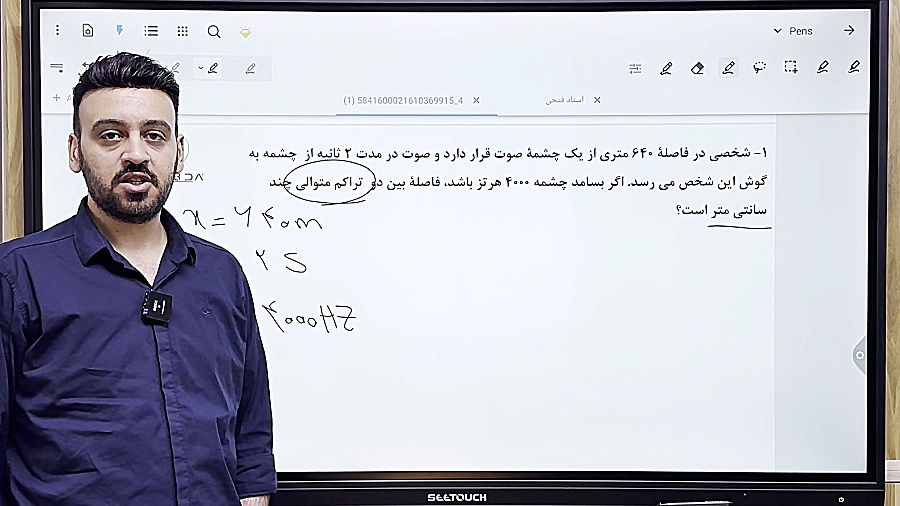 Pens
4_5841600021610369915 (1)
استاد فتحی
۱- شخصی در فاصلهٔ ۶۴۰ متری از یک چشمهٔ صوت قرار دارد و صوت در مدت ۲ ثانیه از چشمه به
گوش این شخص می رسد. اگر بسامد چشمه ۴۰۰۰ هرتز باشد، فاصلهٔ بین دو تراکم متوالی چند
سانتی متر است؟
x = ۶۴۰m
۲ S
۴۰۰۰HZ
SEETOUCH